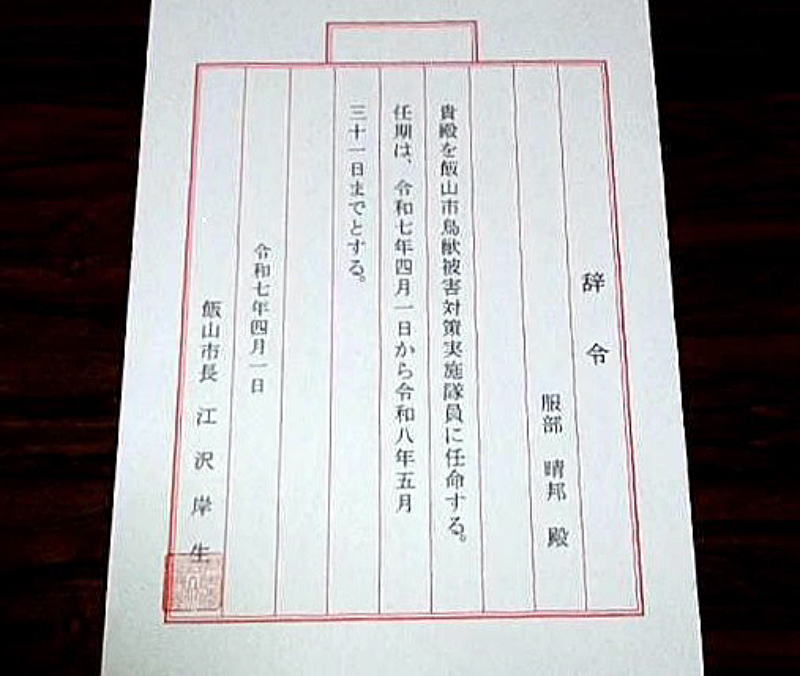 辞令
服部 晴邦 殿
貴殿を飯山市鳥獣被害対策実施隊員に任命する。
任期は、令和七年四月一日から令和八年五月
三十一日までとする。
令和七年四月一日
飯山市長 江沢岸生